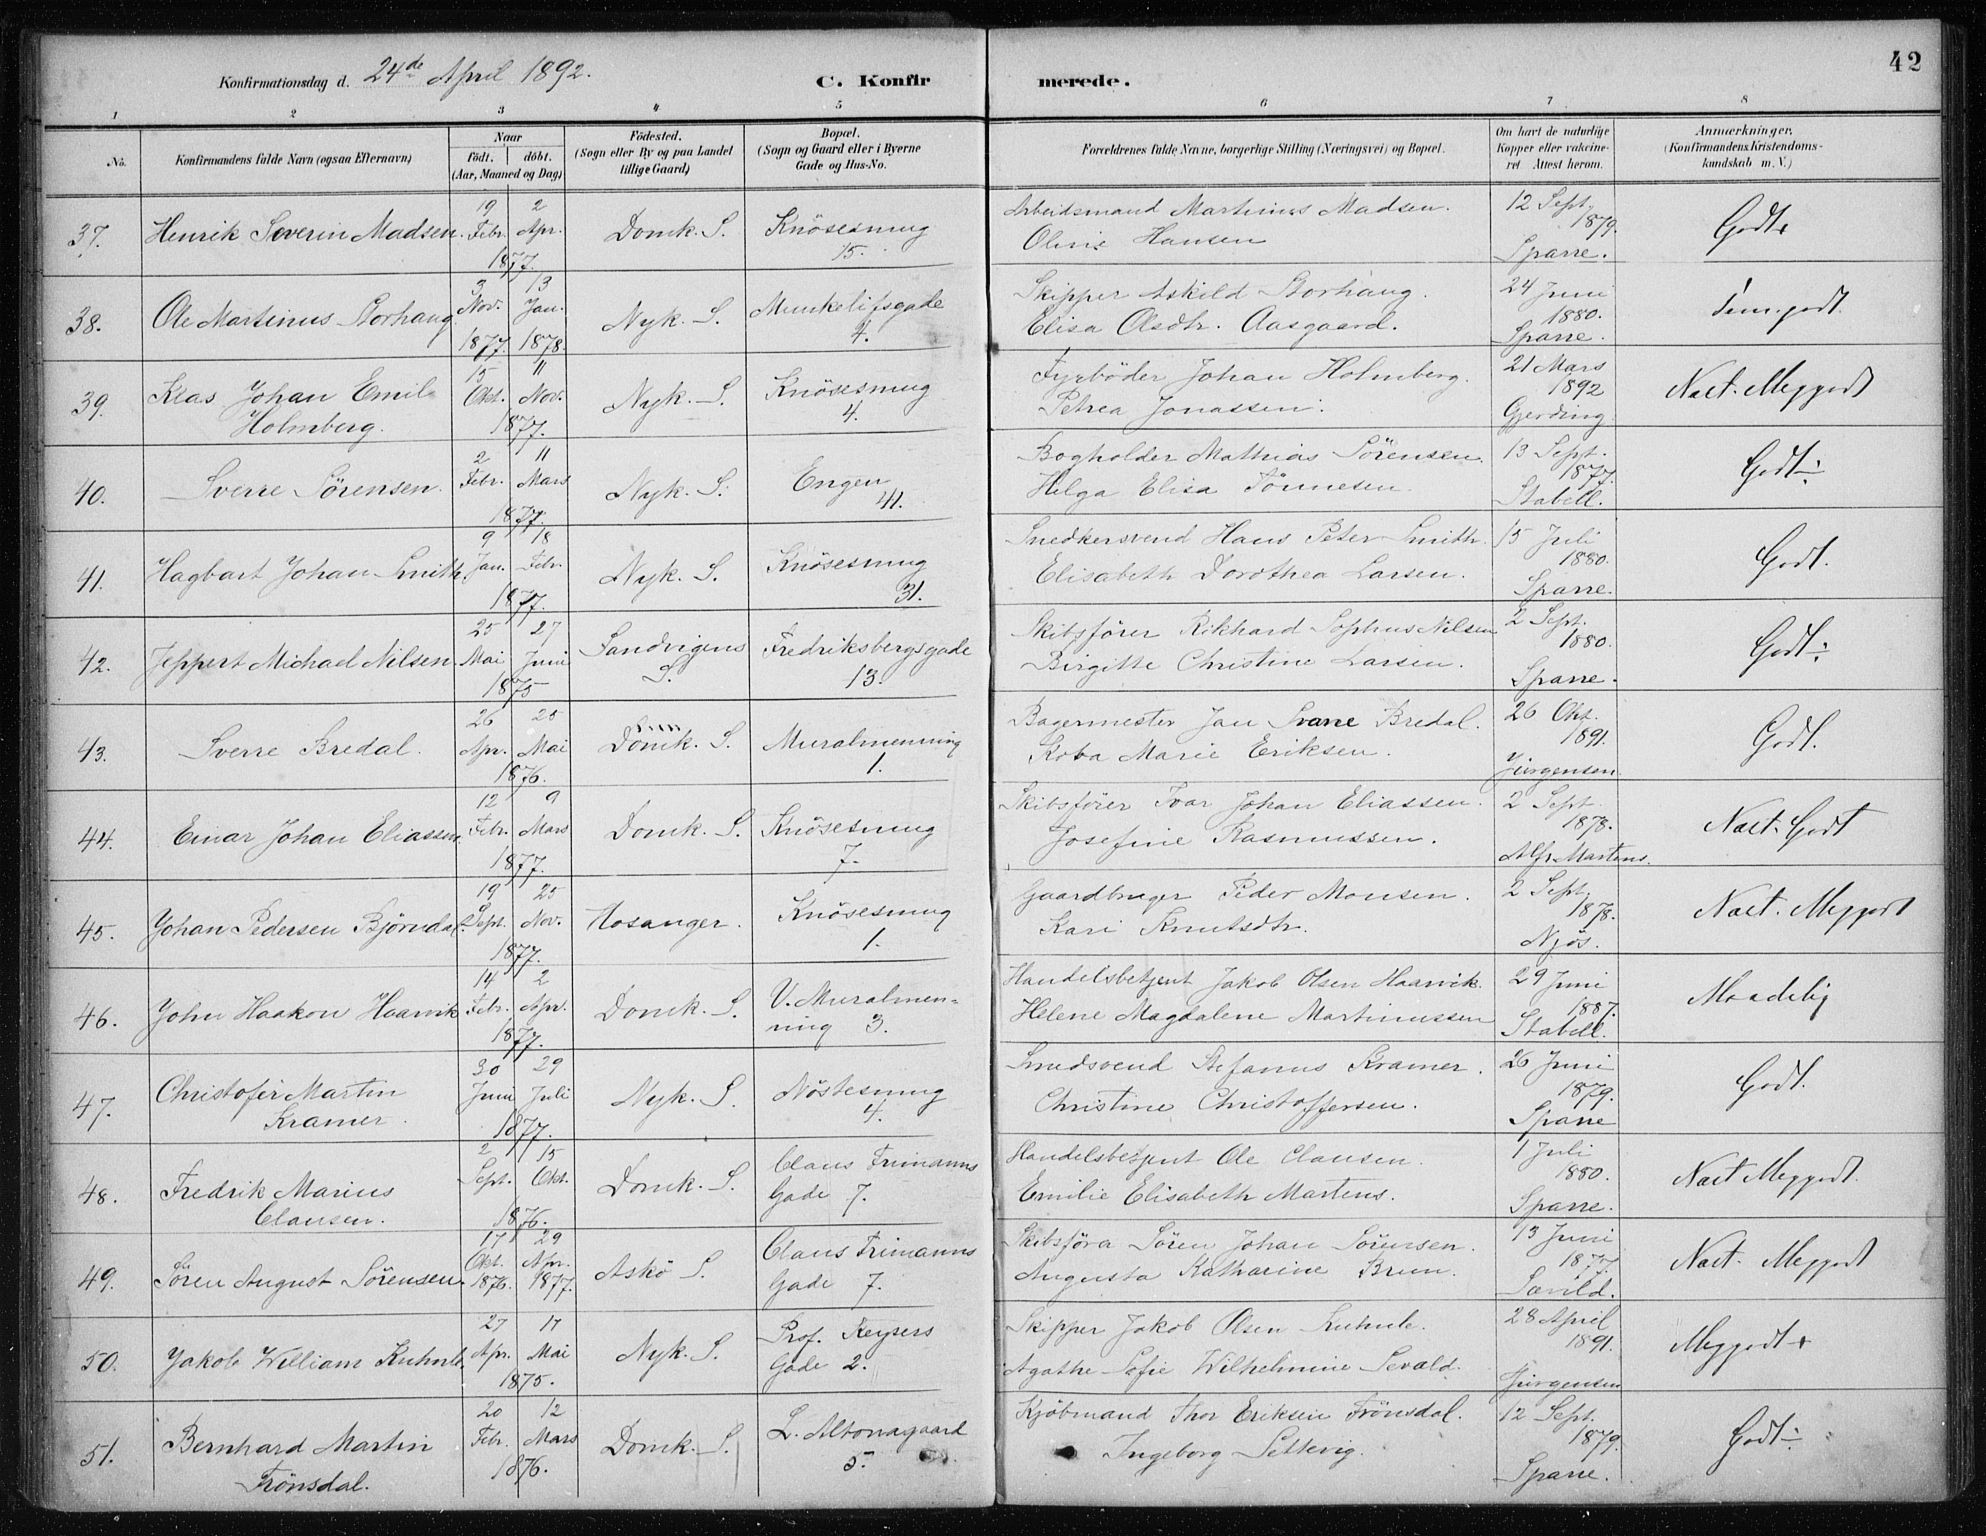 42
Konfirmationsdag d. 24de April 1892.
C. Konfirmerede.
1 2 3 4 5 6 7 8
No.
Konfirmandens fulde Navn (ogsaa Efternavn)
Naar
født. døbt.
(Aar, Maaned og Dag)
Födested.
(Sogn eller By og paa Landet
tillige Gaard)
Bopæl.
(Sogn og Gaard eller i Byerne
Gade og Hus-No.
Forældrenes fulde Navne, borgerlige Stilling (Næringsvei) og Bopæl.
Om havt de naturlige
Kopper eller vakcine-
ret. Attest herom.
Anmærkninger.
(Konfirmandens Kristendoms-
kundskab m. V.)
37. Henrik Severin Madsen. 19 Febr. 2 Apr. 1877. Domk. S. Knösesmug 15. Arbeidsmand Martinus Madsen. Oline Hansen 12 Sept. 1879. Sparre. Godt+
38. Ole Martinus Storhaug 3 Nov. 1877. 13 Jan. 1878. Nyk. S. Munkelifsgade 4. Skipper Askild Storhaug. Elisa Olsdtr. Aasgaard. 24 Juni 1880. Sparre. Tem. godt.
39. Klas Johan Emil Holmberg. 15 Okt. 11 Nov. 1877. Nyk. S. Knösesmug 4. Fyrböder Johan Holmberg. Petrea Jonassen. 21 Mars 1892 Gjerding. Næst. Meggodt
40. Sverre Sörensen. 2 Febr. 11 Mars 1877. Nyk. S. Engen 41. Bogholder Mathias Sörensen. Helga Elisa Tönnesen. 13 Sept. 1877. Stabell. Godt÷
41. Hagbart Johan Smith 9 Jan. 18 Febr. 1877. Nyk. S. Knösesmug 31. Snedkersvend Hans Peter Smith. Elisabeth Dorothea Larsen. 15 Juli 1880. Sparre. Godt.
42. Jeppert Michael Nilsen 25 Mai 27 Juni 1875 Sandvigens S. Fredriksbergsgade 13. Skibsförer Rikhard Sophus Nilsen Birgitte Christine Larsen. 2 Sept. 1880. Sparre. Godt÷
43. Sverre Bredal. 26 Apr. 25 Mai 1876. Domk. S. Muralmenning 1. Bagermester Jan Svane Bredal. Koba Marie Eriksen. 26 Okt. 1891. Jürgensen. Godt.
44. Einar Johan Eliassen. 12 Febr. 9 Mars 1877. Domk. S. Knösesmug 7. Skibsförer Ivar Johan Eliassen. Josefine Rasmussen. 2 Sept. 1878. Alfr. Martens. Næst. Godt
45. Johan Pedersen Björndal. 19 Sept. 25 Nov. 1877. Hosanger. Knösesmug 1. Gaardbruger Peder Monsen. Kari Knutsdtr. 2 Sept. 1878. Njös. Næst. Meggodt
46. John Haakon Haavik 14 Febr. 2 Apr. 1877. Domk. S. V. Muralmen-
ning 3. Handelsbetjent Jakob Olsen Haavik. Helene Magdalene Martinussen 29 Juni 1887. Stabell. Maadelig
47. Christofer Martin Kramer. 30 Juni 29 Juli 1877. Nyk. S. Nöstesmug 4. Smedsvend Stefanus Kramer. Christine Christoffersen. 26 Juni 1879. Sparre Godt.
48. Fredrik Marius Clausen. 2 Sept. 15 Okt. 1876. Domk. S. Claus Frimanns Gade 7. Handelsbetjent Ole Clausen. Emilie Elisabeth Martens. 1 Juli 1880. Sparre. Næst Meggodt.
49. Sören August Sörensen 17 Okt. 1876. 29 Apr. 1877. Askö S. Claus Frimanns Gade 7. Skibsförer Sören Johan Sörensen. Augusta Katharine Brun. 13 Juni 1877. Sævild. Næst. Meggodt
50. Jakob William Kuhnle. 27 Apr. 17 Mai 1875. Nyk. S. Prof. Keysers Gade 2. Skipper Jakob Olsen Kuhnle. Agathe Sofie Wilhelmine Sevald. 28 April 1891. Jürgensen Meggodt+
51. Bernhard Martin Frönsdal. 20 Febr. 12 Mars 1876. Domk. S. L. Altonagaard 5. Kjöbmand Thor Eriksen Frönsdal. Ingeborg Settevig. 12 Sept. 1879. Sparre. Godt÷